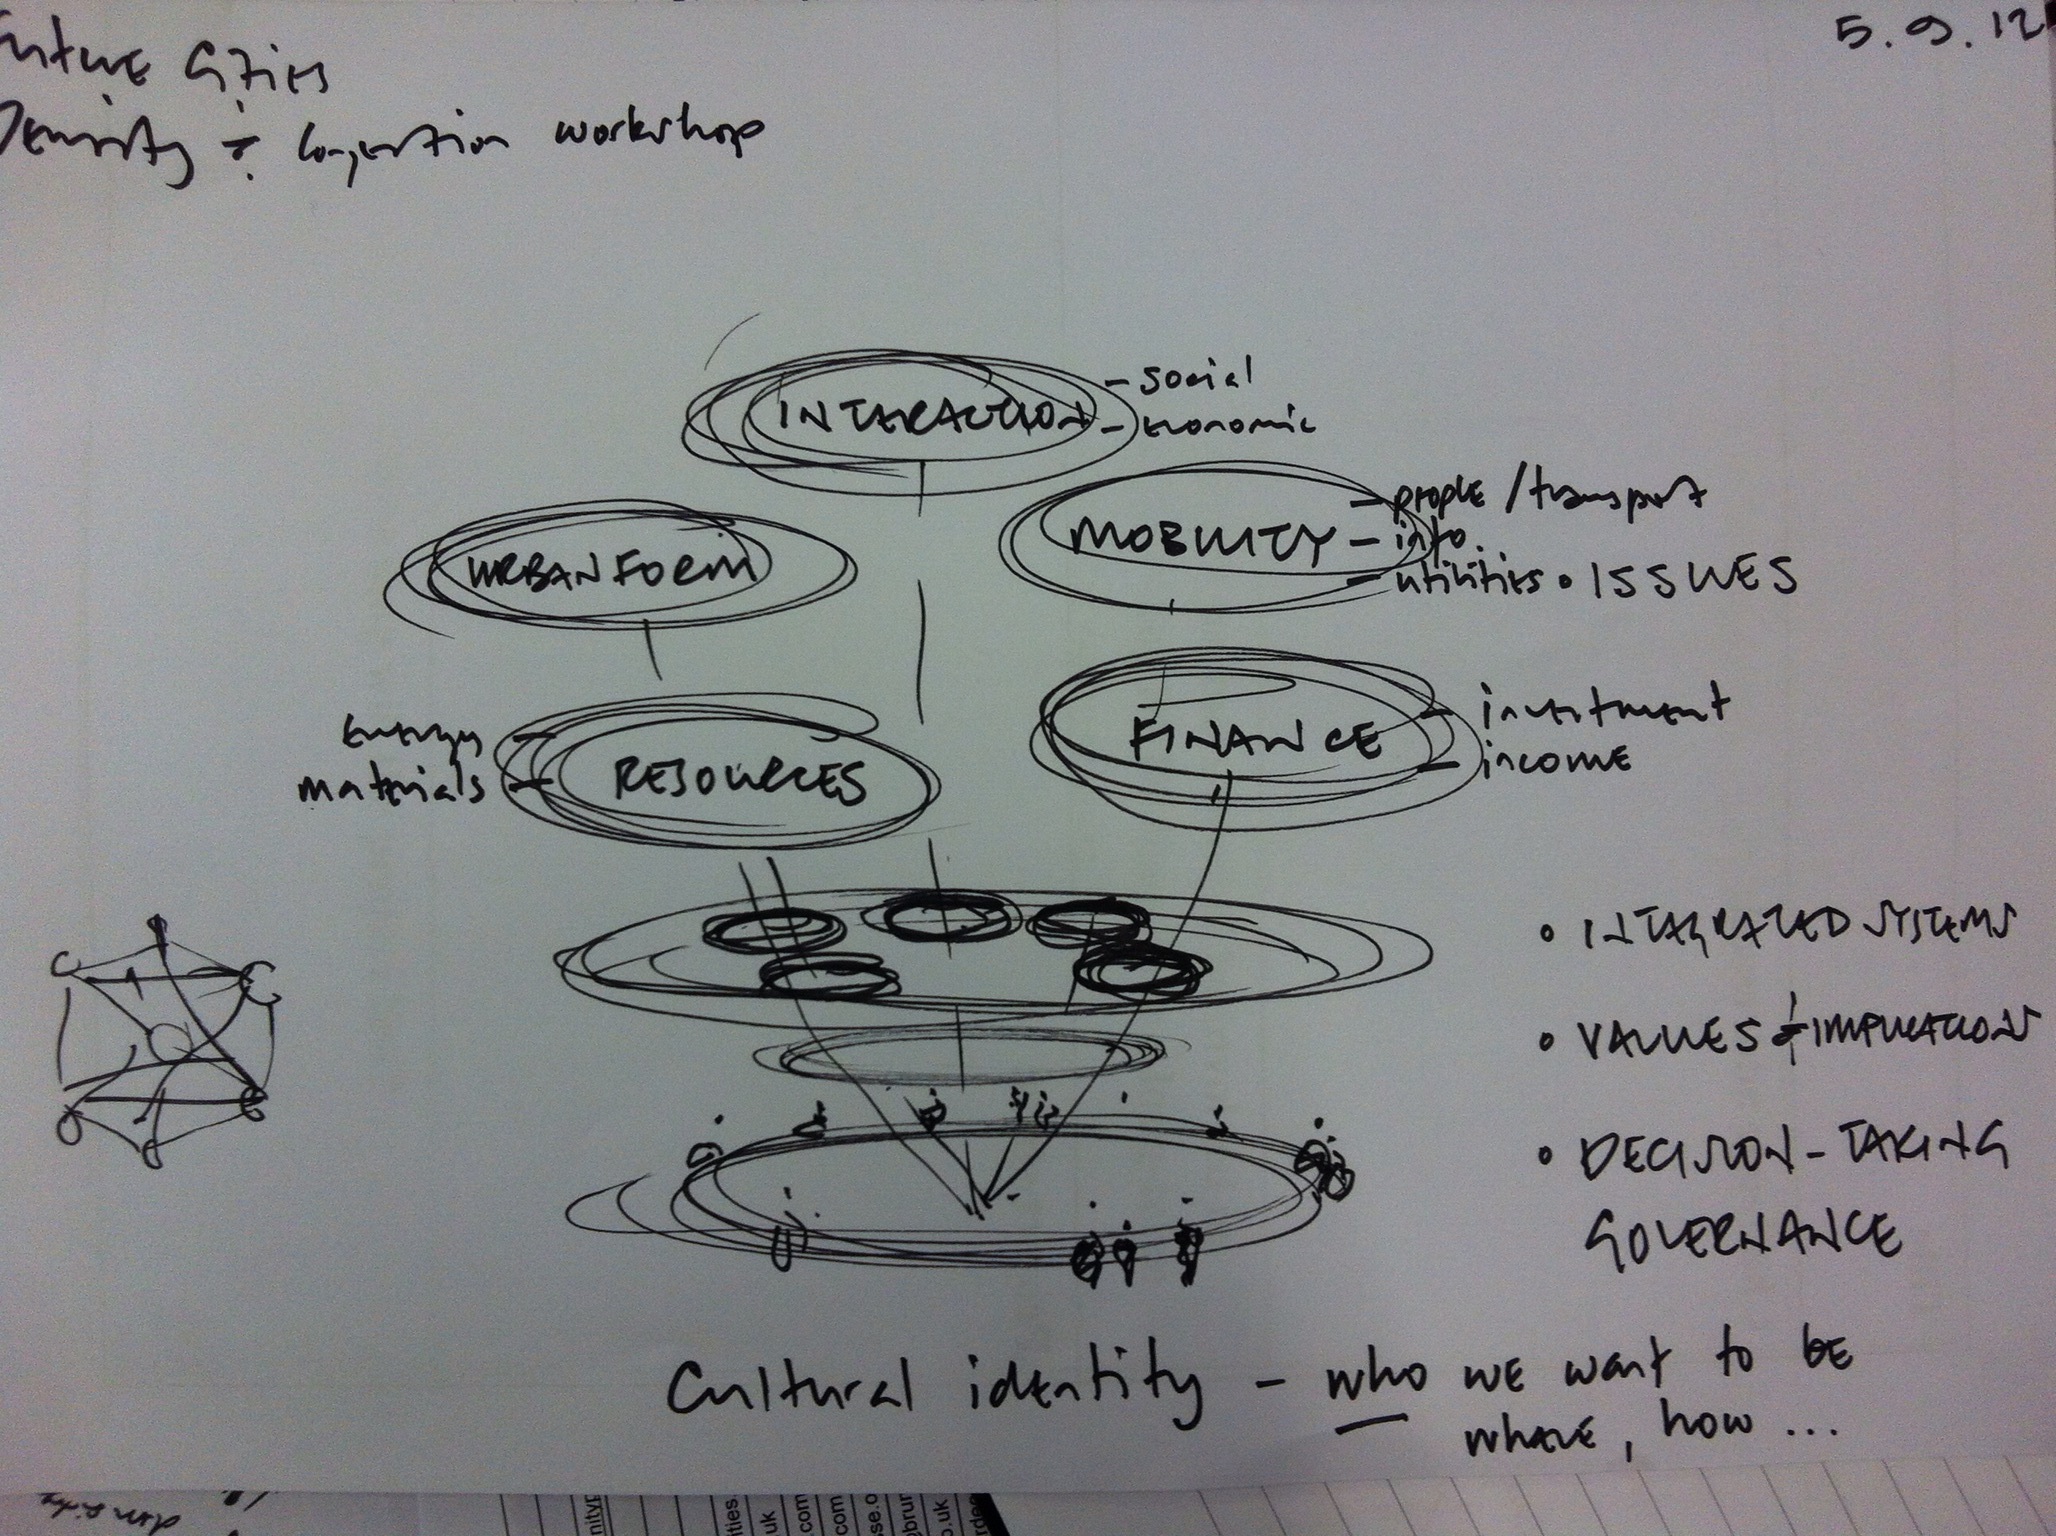 Future Cities
5.9.12
Density & Congestion workshop
INTERACTION
- social
- economic
URBAN FORM
MOBILITY
- people / transport
- info.
- utilities
• ISSUES
energy -
materials -
RESOURCES
FINANCE
- investment
- income
• INTEGRATED SYSTEMS
• VALUES & IMPLICATIONS
• DECISION-TAKING
GOVERNANCE
Cultural identity - who we want to be
where, how ...
density
ities.
uk
.com
com
se.o
@brun
o.uk